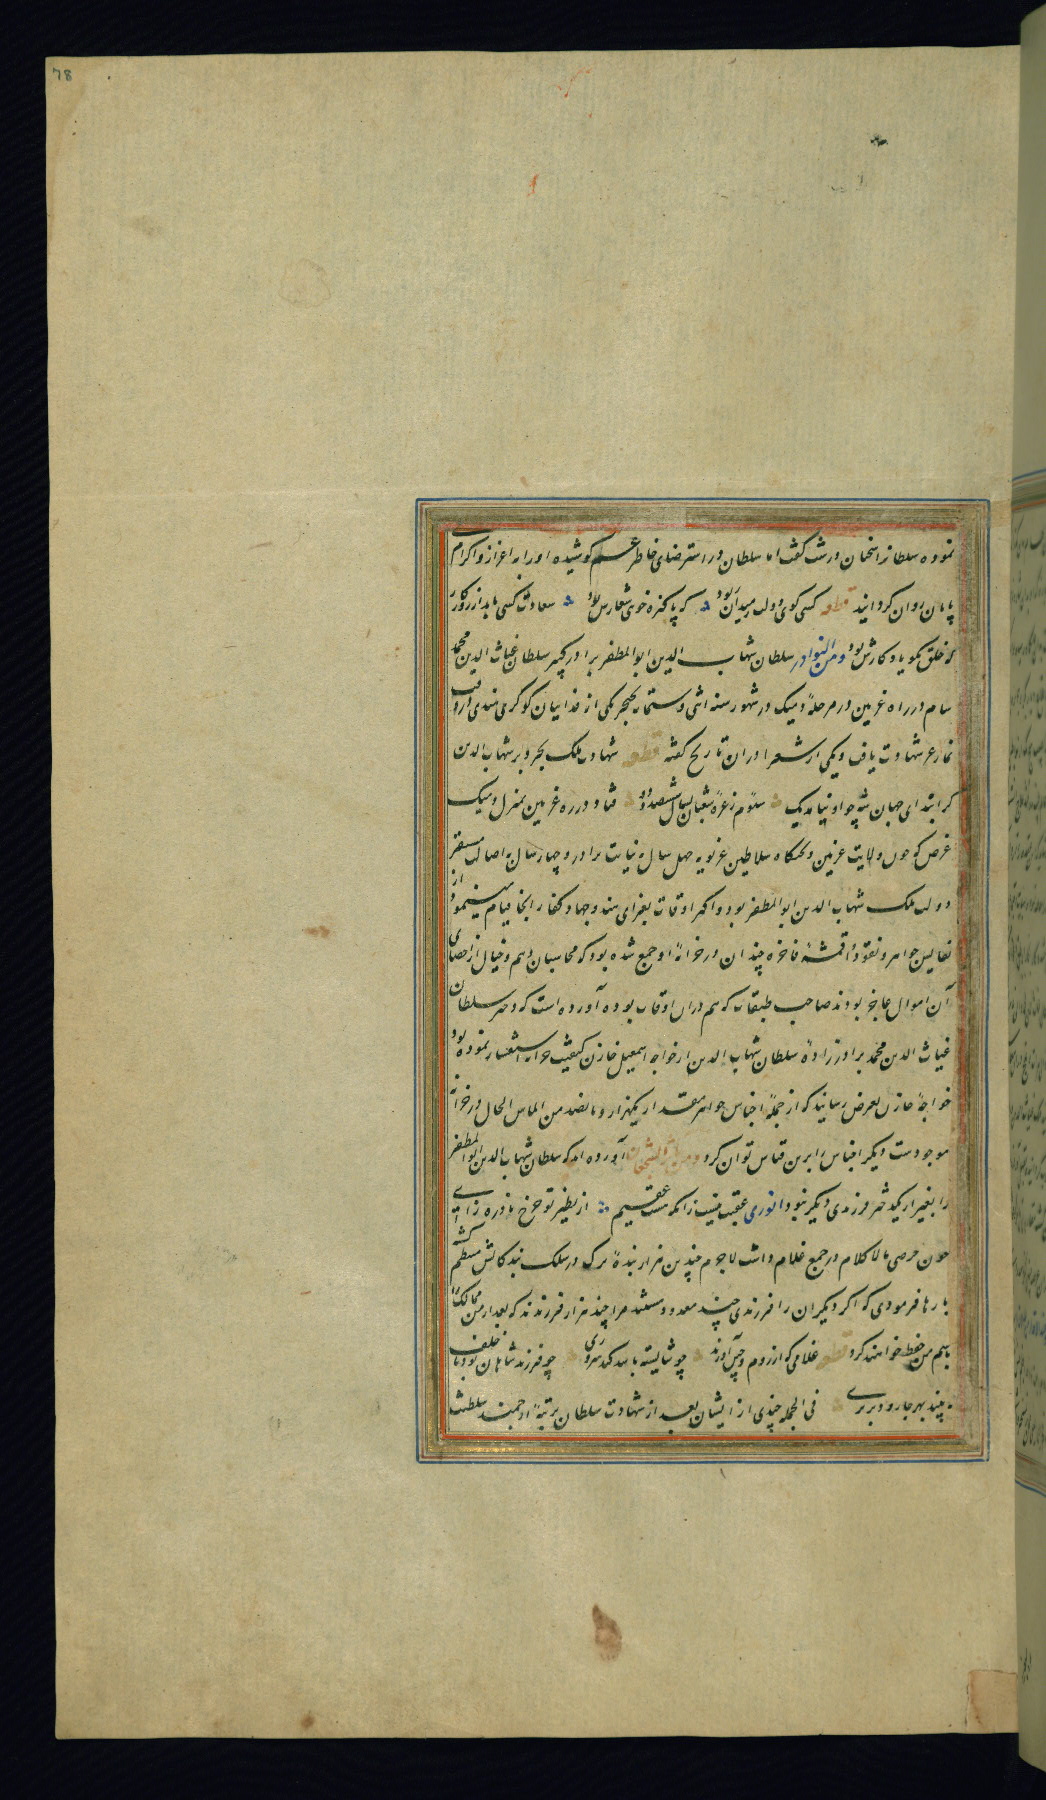 78
نموده سلطانرا سخنان درشت گفت اما سلطان در استرضای خاطر عم کوشیده او را به اعزاز و اکرام
پایان روان گردانید قطعه کسی گوی دولت ز میدان بود که پاکیزه خوی شعارش بود سعادت کسی یابد از روزگار
که خلق نکو یاد کارش بود ومن النوادر سلطان شهاب الدین ابوالمظفر برادر کهتر سلطان غیاث الدین محمد
سام در راه غزنین در مرحله دمیک در شهور سنه اثنی و ستمایه بخنجر یکی از فداییان کوکری هندی در وقت
نماز عز شهادت یافت و یکی از شعرا در ان تاریخ گفته قطعه شهادت ملک بحر و بر شهاب الدین
کز ابتدای جهان شه چو او نیامد یک سیوم ز غره شعبان بسال ششصد و دو فتاد در ره غزنین بمنزل دمیک
غرض که چون ولایت غزنین و تختگاه سلاطین غزنویه چهل سال به نیابت برادر و چهار سال به اصالت مستقر
دولت ملک شهاب الدین ابوالمظفر بود و اکثر اوقات بغزای هند و جهاد کفار انجا قیام مینمود از
نفایس جواهر و نقود و اقمشهٔ فاخره چندان در خزانهٔ او جمع شده بود که محاسبان وهم و خیال از احصای
آن اموال عاجز بودند صاحب طبقات که هم دران اوقات بوده آورده است که دختر سلطان
غیاث الدین محمد برادرزادهٔ سلطان شهاب الدین از خواجه اسمعیل خازن کیفیت خزانه استفسار نموده بود
خواجهٔ خازن بعرض رسانید که از جملهٔ اجناس جواهر مقدار یکهزار و پانصد من الماس الحال در خزانه
موجودست دیگر اجناس را برین قیاس توان کرد آورده اند که سلطان شهاب الدین ابوالمظفر
را بغیر از یکدختر فرزندی دیگر نبود انوری عقبت نیست زانکه هست عقیم از نظیر تو چرخ نادره زای
چون حرصی مالاکلام در جمع غلام داشت لاجرم چندین هزار بندهٔ ترک در سلک بندگانش منتظم گشته
بارها فرمودی که اگر دیگران را فرزندی چند معدود هستند مرا چند هزار فرزندند که بعد از من ممالک را
باسم من حفظ خواهند کرد قطعه غلامی که از روم و چین آورند چو شایسته باشد کند سروری چو فرزند شاهان بود ناخلف
فی الجمله چندی از ایشان بعد از شهادت سلطان برتبهٔ ارجمند سلطنت